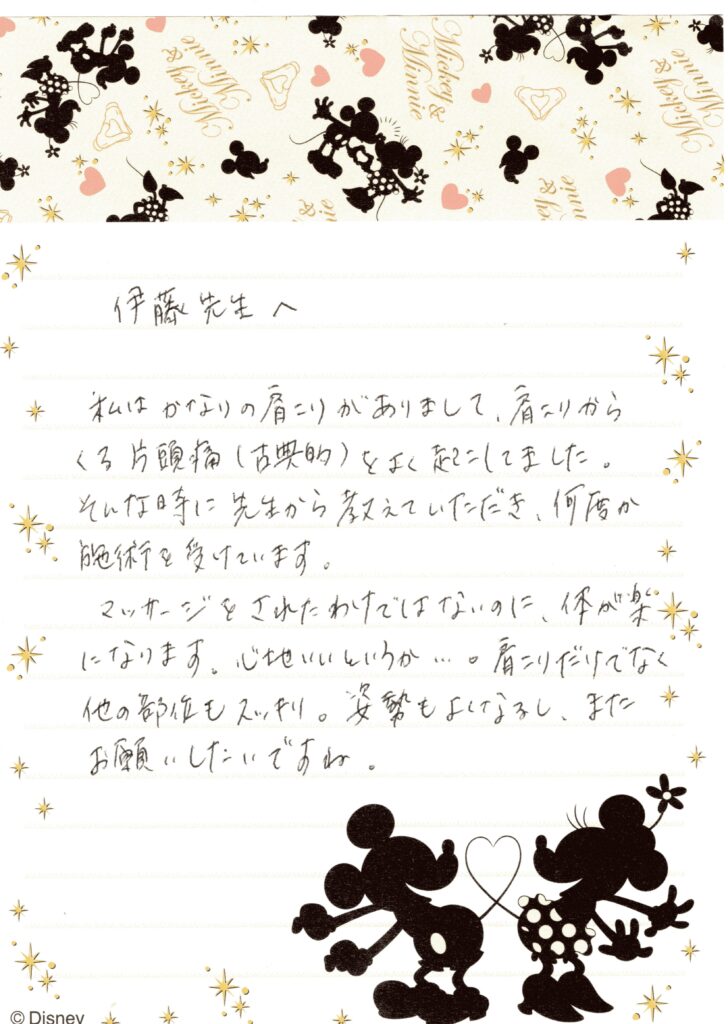 Mickey & Minnie
Mickey & Minnie
Mickey & Minnie
Mickey &
Minnie
伊藤先生へ
私はかなりの肩こりがありまして、肩こりから
くる片頭痛(古典的)をよく起こしてました。
そんな時に先生から教えていただき、何度か
施術を受けています。
マッサージをされたわけではないのに、体が楽
になります。心地いいというか…。肩こりだけでなく
他の部位もスッキリ。姿勢もよくなるし、また
お願いしたいですね。
© Disney